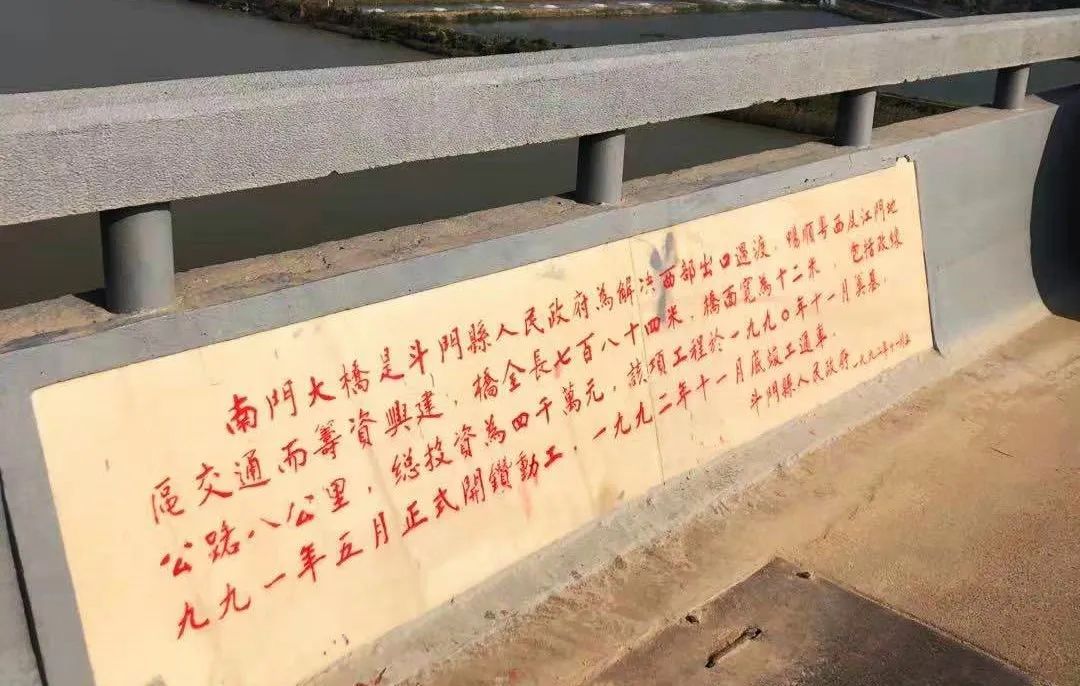 南門大橋是斗門縣人民政府為解决西部出口過渡，暢順粤西及江門地
區交通而籌資興建，橋全長七百八十四米，橋面寬為十二米，包括改線
公路八公里，總投資為四千萬元，該項工程於一九九〇年十一月奠基，
九九一年五月正式開鑽動工，一九九二年十一月底竣工通車。
斗門縣人民政府一九九二年十一月